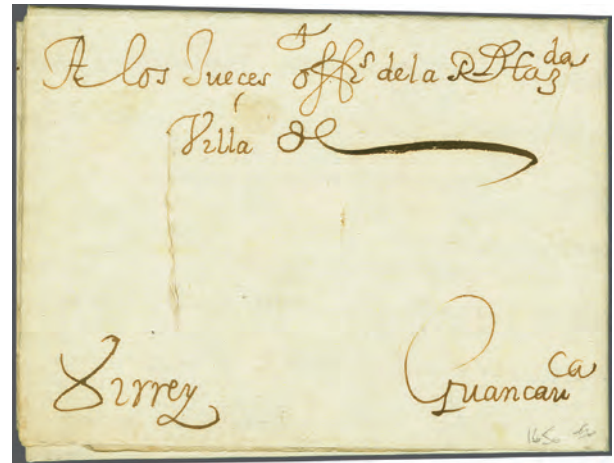 A los Jueces offs de la Rl Hazda
Villa de
Virrey Guancauca
1650